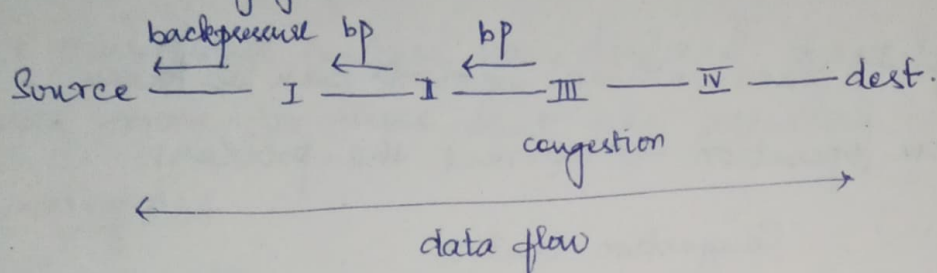 backpressure bp bp
Source I II III IV dest.
congestion
data flow